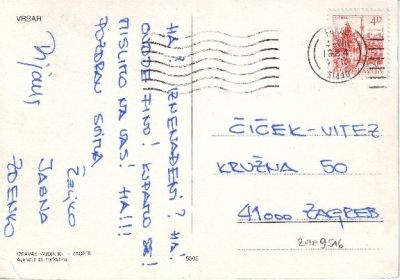 VRSAR
HA? IZNENAĐENI? HA!
OVDJE SMO! KUPAMO SE!
MISLIMO NA VAS! HA!!!
POZDRAV SVIMA
ŽELJKO
JASNA
ZDENKO
ČIČEK-VITEZ
KRUŽNA 50
41000 ZAGREB